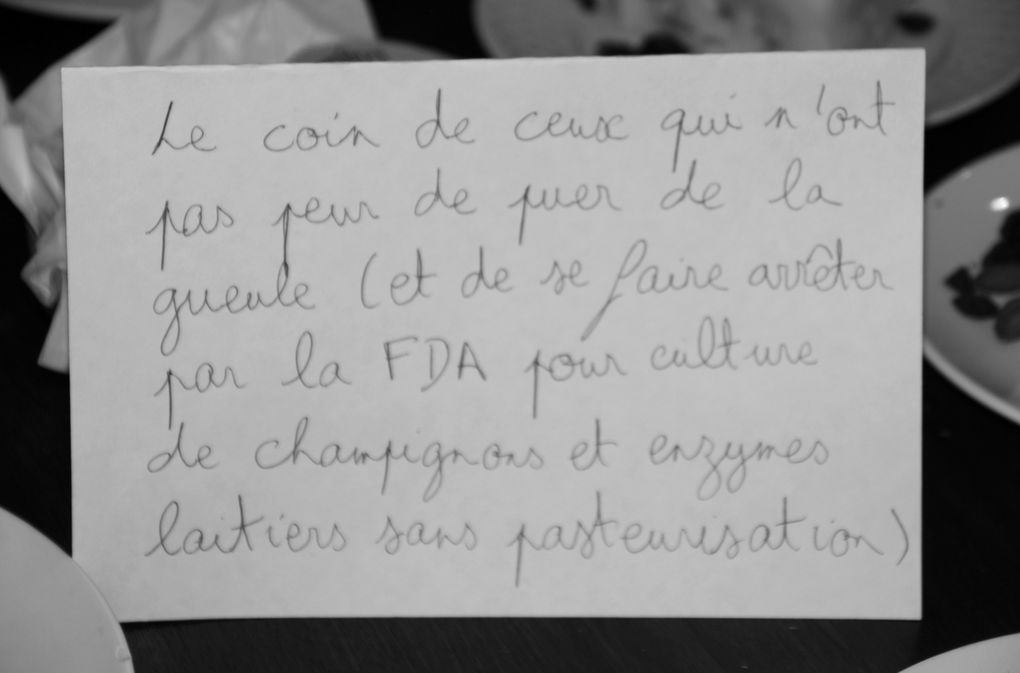 Le coin de ceux qui n'ont
pas peur de puer de la
gueule (et de se faire arrêter
par la FDA pour culture
de champignons et enzymes
laitiers sans pasteurisation)